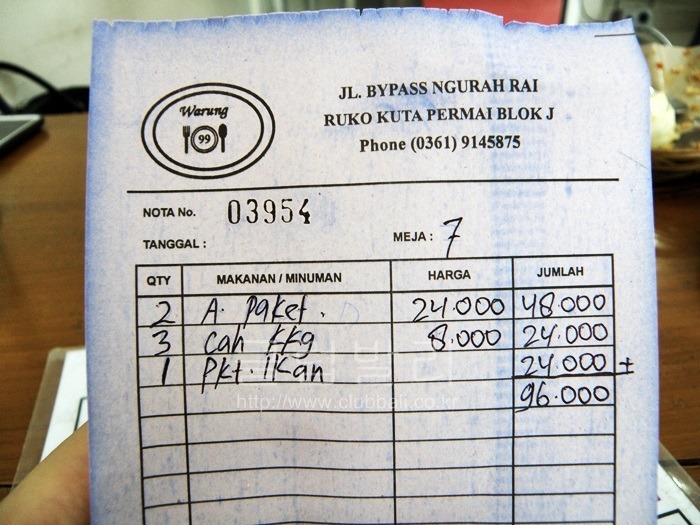 Warung
99
JL. BYPASS NGURAH RAI
RUKO KUTA PERMAI BLOK J
Phone (0361) 9145875
NOTA No. 03954
TANGGAL :
MEJA : 7
QTY MAKANAN / MINUMAN HARGA JUMLAH
2 A. Paket. 24.000 48.000
3 Cah kkg 8.000 24.000
1 Pkt. Ikan 24.000 +
96.000
클럽발리
http://www.clubbali.co.kr